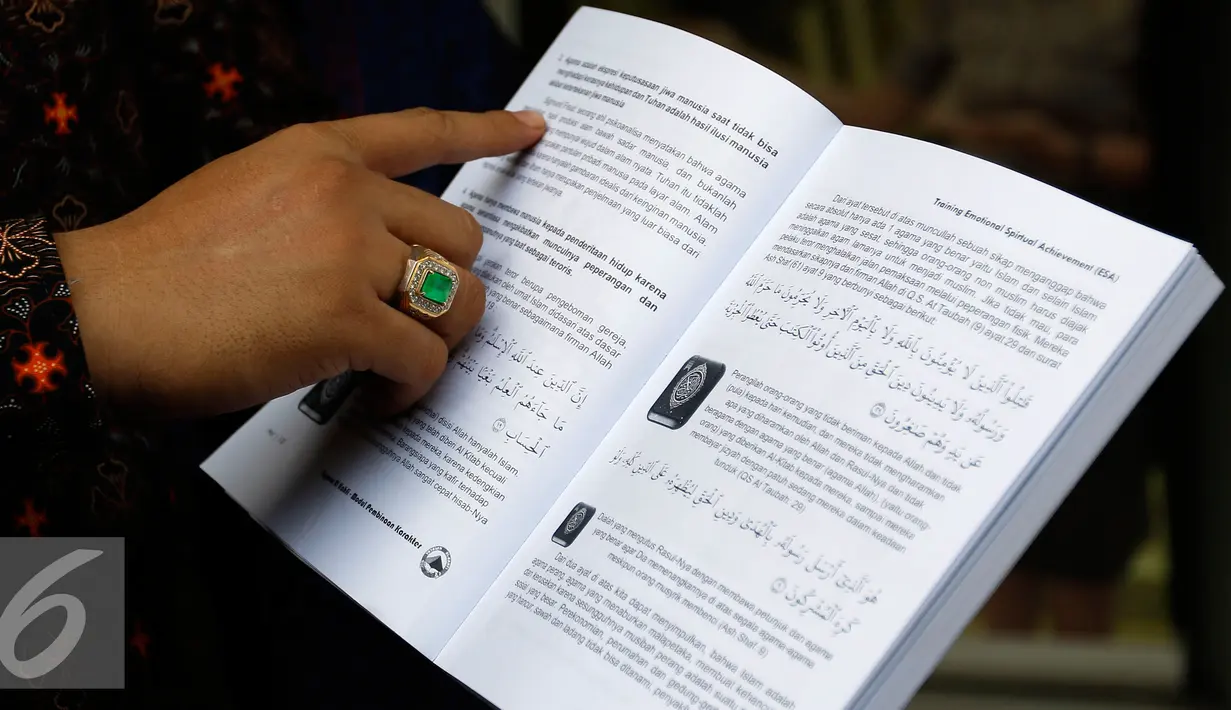 3. Agama adalah ekspresi keputusasaan jiwa manusia saat tidak bisa
menghadapi kerasnya kehidupan dan Tuhan adalah hasil ilusi manusia
akibat ketertekanan jiwa manusia
Sigmund Freud seorang ahli psikoanalisa menyatakan bahwa agama
alam bawah sadar manusia, dan bukanlah
mempunyai wujud dalam alam nyata. Tuhan itu tidaklah
pribadi manusia pada layar alam. Alam
agama hanyalah gambaran idealis dari keinginan manusia,
hanya merupakan penjelmaan yang luar biasa dari
4. Agama hanya membawa manusia kepada penderitaan hidup karena
senantiasa mengakibatkan munculnya peperangan dan
yang buat sebagai teroris.
teror berupa pengeboman gereja,
dilakukan oleh umat Islam didasari atas dasar
yang benar sebagaimana firman Allah
إِنَّ الدِّينَ عِنْدَ اللَّهِ الْإِسْلَامُ
مَا جَاءَهُمُ الْعِلْمُ بَغْيًا بَيْنَهُمْ
الْحِسَابِ ١٩
disisi Allah hanyalah Islam
yang telah diberi Al Kitab kecuali
kepada mereka, karena kedengkian
Barangsiapa yang kafir terhadap
Allah sangat cepat hisab-Nya
Model Pembinaan Karakter
Training Emotional Spiritual Achievement (ESA)
Dari ayat tersebut di atas muncullah sebuah sikap menganggap bahwa
secara absolut hanya ada 1 agama yang benar yaitu Islam dan selain Islam
adalah agama yang sesat, sehingga orang-orang non muslim harus diajak
meninggalkan agam lamanya untuk menjadi muslim. Jika tidak mau, para
pelaku teror menghalalkan jalan pemaksaan melalui peperangan fisik. Mereka
mendasarkan sikapnya dari firman Allah di Q.S. At Taubah (9) ayat 29 dan surat
Ash Shaf (61) ayat 9 yang berbunyi sebagai berikut.
قَاتِلُوا الَّذِينَ لَا يُؤْمِنُونَ بِاللَّهِ وَلَا بِالْيَوْمِ الْآخِرِ وَلَا يُحَرِّمُونَ مَا حَرَّمَ اللَّهُ
وَرَسُولُهُ وَلَا يَدِينُونَ دِينَ الْحَقِّ مِنَ الَّذِينَ أُوتُوا الْكِتَابَ حَتَّىٰ يُعْطُوا الْجِزْيَةَ
عَنْ يَدٍ وَهُمْ صَاغِرُونَ ٢٩
Perangilah orang-orang yang tidak beriman kepada Allah dan tidak
(pula) kepada hari kemudian, dan mereka tidak mengharamkan
apa yang diharamkan oleh Allah dan Rasul-Nya dan tidak
beragama dengan agama yang benar (agama Allah), (yaitu orang-
orang) yang diberikan Al-Kitab kepada mereka, sampai mereka
membayar jizyah dengan patuh sedang mereka dalam keadaan
tunduk (QS At Taubah: 29)
هُوَ الَّذِي أَرْسَلَ رَسُولَهُ بِالْهُدَىٰ وَدِينِ الْحَقِّ لِيُظْهِرَهُ عَلَى الدِّينِ كُلِّهِ وَلَوْ
كَرِهَ الْمُشْرِكُونَ ٩
Dialah yang mengutus Rasul-Nya dengan membawa petunjuk dan agama
yang benar agar Dia memenangkannya di atas segala agama-agama
meskipun orang musyrik membenci (Ash Shaf: 9)
Dari dua ayat di atas kita dapat menyimpulkan, bahwa Islam adalah
agama perang, agama yang menaburkan malapetaka, membuat
dan kerusakan karena sesungguhnya musibah perang adalah suatu
sosial yang besar. Perekonomian, perumahan dan gedung-
yang hancur, sawah dan ladang tidak bisa ditanami,
6